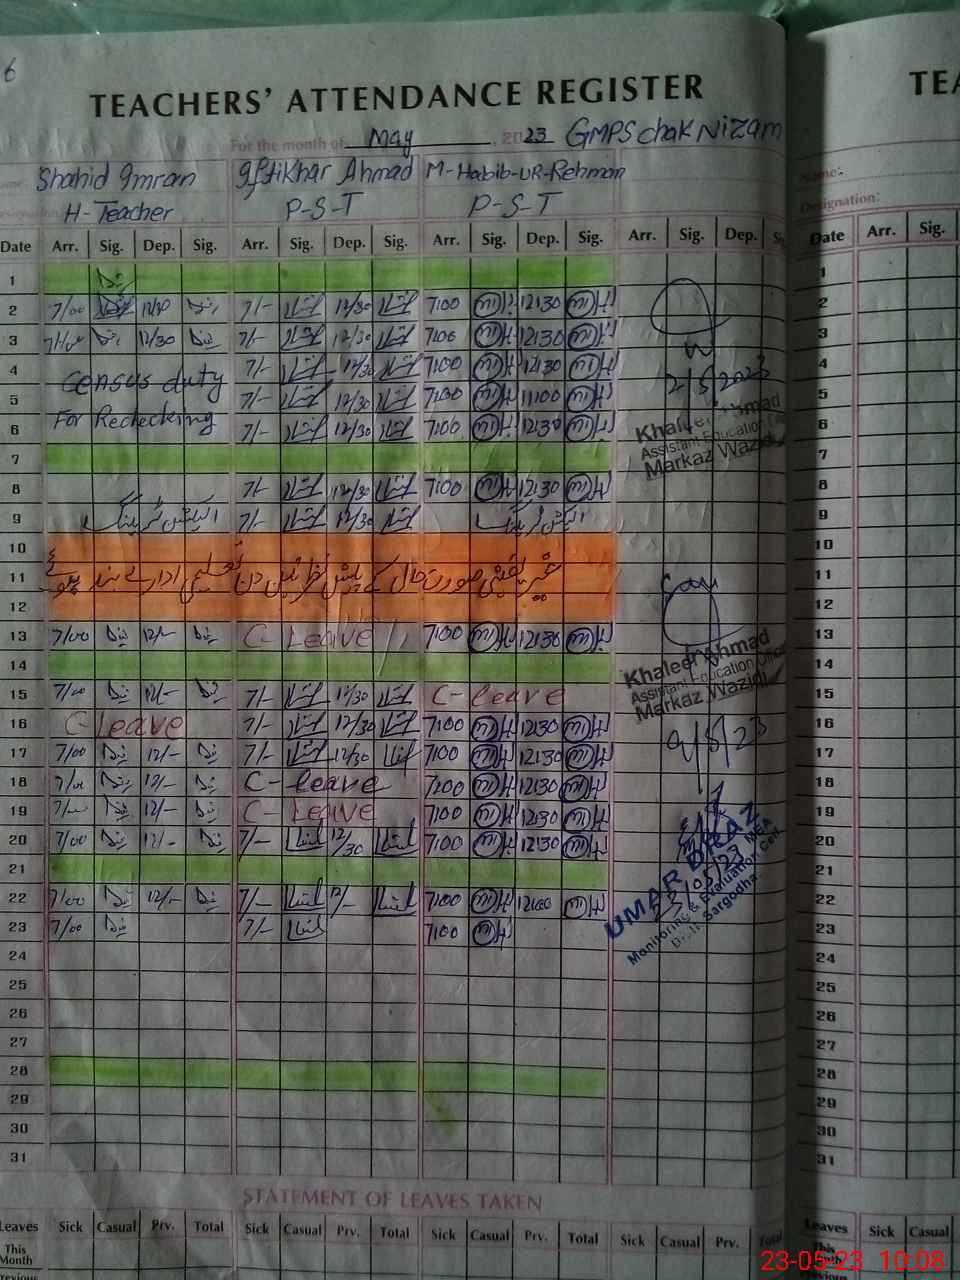 6
TEACHERS' ATTENDANCE REGISTER
For the month of May, 2023 GMPS chak Nizam
Name: Shahid Imran Iftikhar Ahmad M-Habib-UR-Rehman
Designation H-Teacher P-S-T P-S-T
Date Arr. Sig. Dep. Sig. Arr. Sig. Dep. Sig. Arr. Sig. Dep. Sig. Arr. Sig. Dep. Sig
1
2 7/00 12/30 7/- 12/30 7:00 12:30
3 7/00 12/30 7/- 12/30 7:00 12:30
4 7/- 12/30 7:00 12:30
Census duty
5 7/- 12/30 7:00 11:00
For Rechecking
6 7/- 12/30 7:00 12:30
2/5/2023
Khaleel Ahmad
Assistant Education Officer
Markaz Wazidi
7
8 7/- 12/30 7:00 12:30
9 الیکشن ٹریننگ 7/- 12/30 الیکشن ٹریننگ
10
11 غیر یقینی صورت حال کے پیش نظر تین دن تعلیمی ادارے بند
12
13 7/00 12/- C-Leave 7:00 12:30
14
Khaleel Ahmad
Assistant Education Officer
Markaz Wazidi
15 7/00 12/- 7/- 12/30 C-leave
16 C Leave 7/- 12/30 7:00 12:30
9/5/23
17 7/00 12/- 7/- 12/30 7:00 12:30
18 7/00 12/- C-leave 7:00 12:30
19 7/00 12/- C-Leave 7:00 12:30
20 7/00 12/- 7/- 12/30 7:00 12:30
21
22 7/00 12/- 7/- 12/- 7:00 12:00
23 7/00 7/- 7:00
UMAR DRAZ MEA
23/05/23
Monitoring & Evaluation Cell
Distt. Sargodha
24
25
26
27
28
29
30
31
STATEMENT OF LEAVES TAKEN
Leaves Sick Casual Prv. Total Sick Casual Prv. Total Sick Casual Prv. Total Sick Casual Prv. Total
This
Month
Previous
TEA
Name:-
Designation:
Date Arr. Sig.
1
2
3
4
5
6
7
8
9
10
11
12
13
14
15
16
17
18
19
20
21
22
23
24
25
26
27
28
29
30
31
Leaves Sick Casual
This
23-05-23 10:08